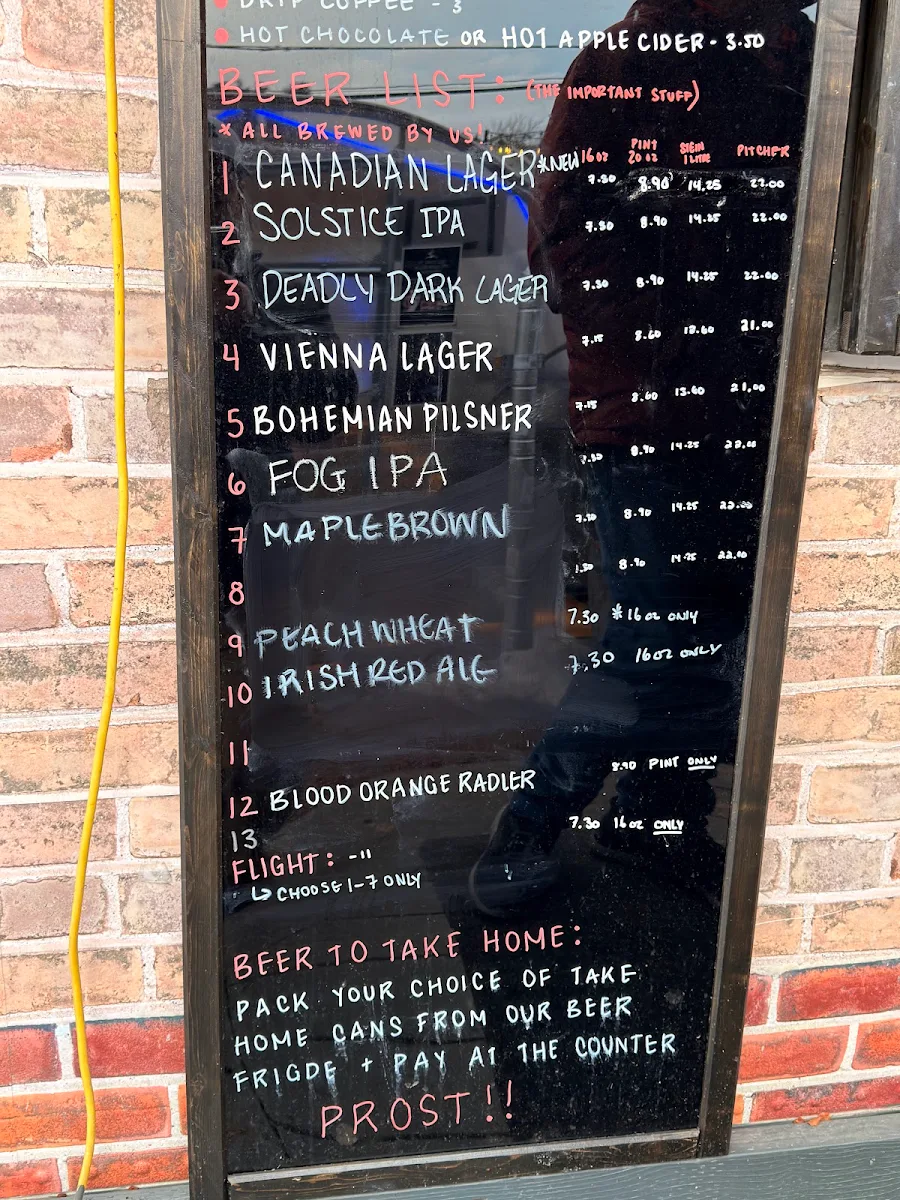 DRIP COFFEE - 3
HOT CHOCOLATE OR HOT APPLE CIDER - 3.50
BEER LIST: (THE IMPORTANT STUFF)
* ALL BREWED BY US!
16 OZ PINT 20 OZ STEIN 1 LITRE PITCHER
1 CANADIAN LAGER *NEW 7.30 8.90 14.25 22.00
2 SOLSTICE IPA 7.30 8.90 14.25 22.00
3 DEADLY DARK LAGER 7.30 8.90 14.25 22.00
4 VIENNA LAGER 7.15 8.60 13.60 21.00
5 BOHEMIAN PILSNER 7.15 8.60 13.60 21.00
6 FOG IPA 7.30 8.90 14.25 22.00
7 MAPLE BROWN 7.30 8.90 14.25 22.00
8 8.90 14.25 22.00
9 PEACH WHEAT 7.30 * 16 OZ ONLY
10 IRISH RED ALE 7.30 16 OZ ONLY
11
12 BLOOD ORANGE RADLER 8.90 PINT ONLY
13 7.30 16 OZ ONLY
FLIGHT: - 11
↳ CHOOSE 1-7 ONLY
BEER TO TAKE HOME:
PACK YOUR CHOICE OF TAKE
HOME CANS FROM OUR BEER
FRIGDE + PAY AT THE COUNTER
PROST!!